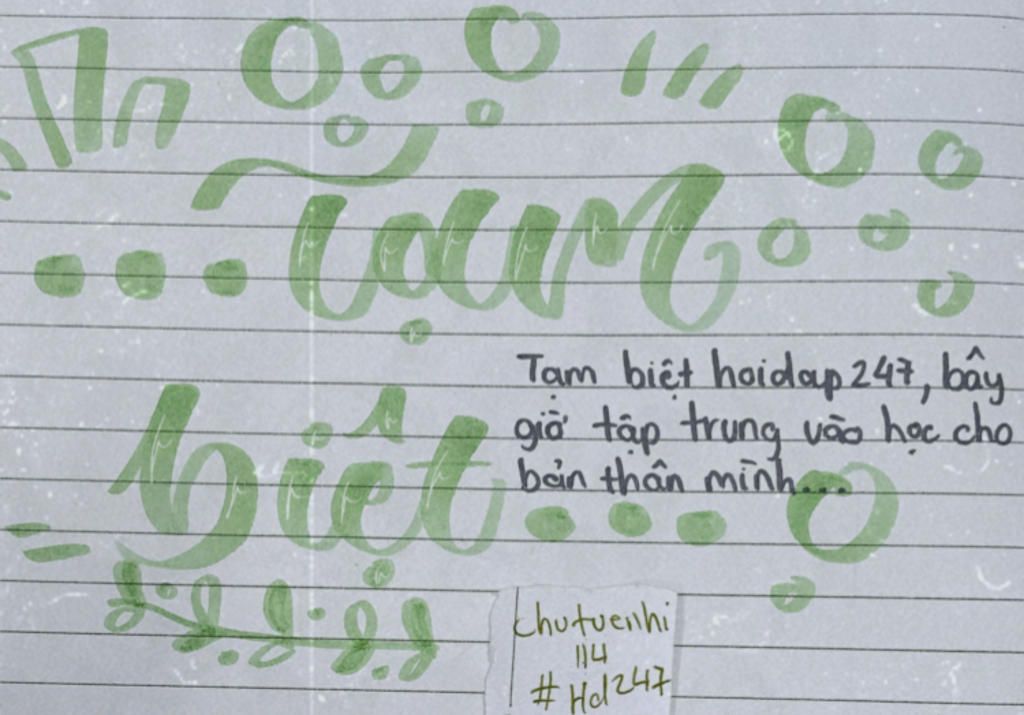 Tạm
biệt
Tạm biệt hoidap247, bây
giờ tập trung vào học cho
bản thân mình...
chutuenhi
114
#Hd247